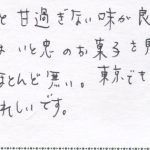 と甘過ぎない味が良
いと思のお菓子を
ほとんど寒い。東京でも
れしいです。